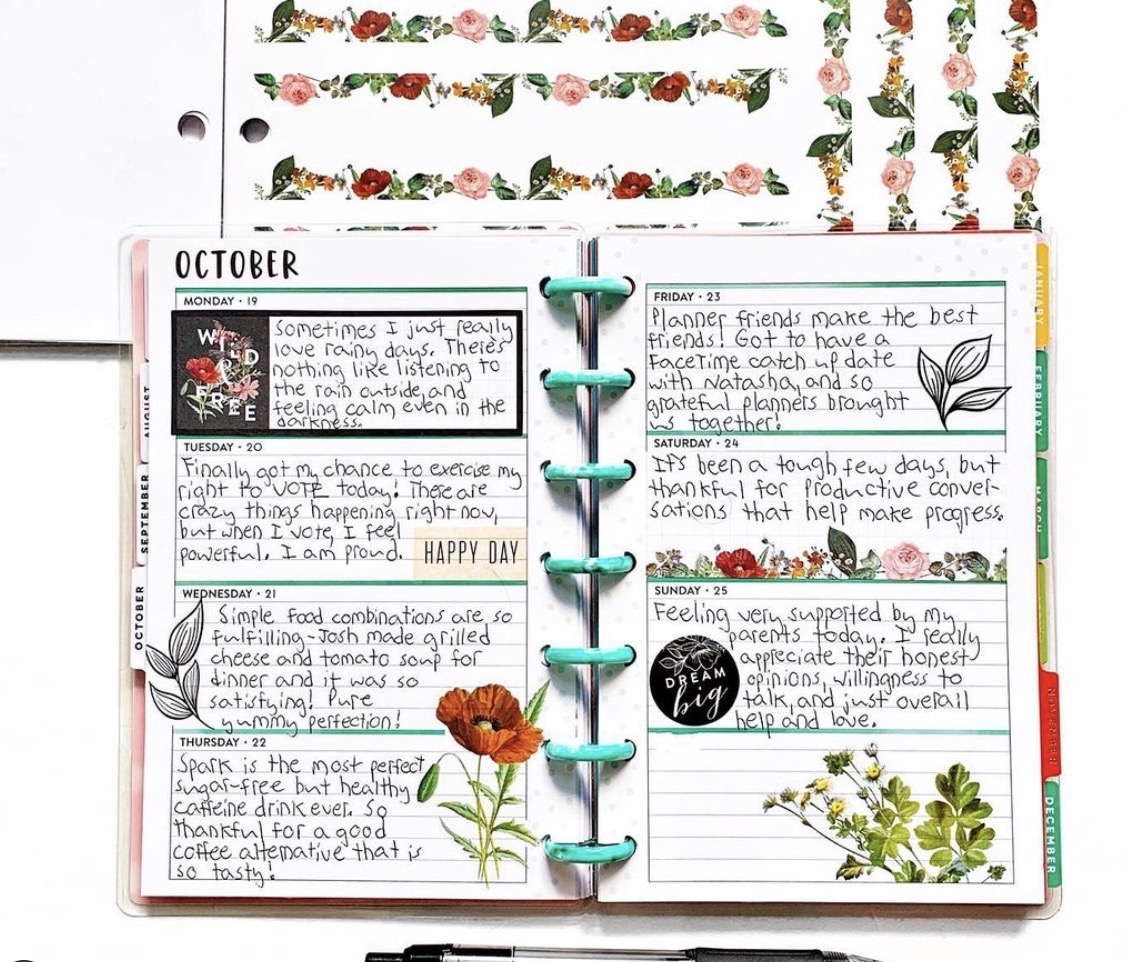 OCTOBER
MONDAY · 19
WILD
&
FREE
Sometimes I just really
love rainy days. There's
nothing like listening to
the rain outside, and
feeling calm even in the
darkness.
TUESDAY · 20
Finally got my chance to exercise my
right to VOTE today! There are
crazy things happening right now,
but when I vote, I feel
powerful. I am proud.
HAPPY DAY
WEDNESDAY · 21
Simple food combinations are so
fulfilling-Josh made grilled
cheese and tomato soup for
dinner and it was so
satisfying! Pure
yummy perfection!
THURSDAY · 22
Spark is the most perfect
sugar-free but healthy
caffeine drink ever. So
thankful for a good
coffee alternative that is
so tasty!
FRIDAY · 23
Planner friends make the best
friends! Got to have a
FaceTime catch up date
with Natasha, and so
grateful planners brought
us together!
SATURDAY · 24
It's been a tough few days, but
thankful for productive conver-
sations that help make progress.
SUNDAY · 25
Feeling very supported by my
parents today. I really
appreciate their honest
opinions, willingness to
talk, and just overall
help and love.
DREAM
big
AUGUST
SEPTEMBER
OCTOBER
JANUARY
FEBRUARY
MARCH
NOVEMBER
DECEMBER